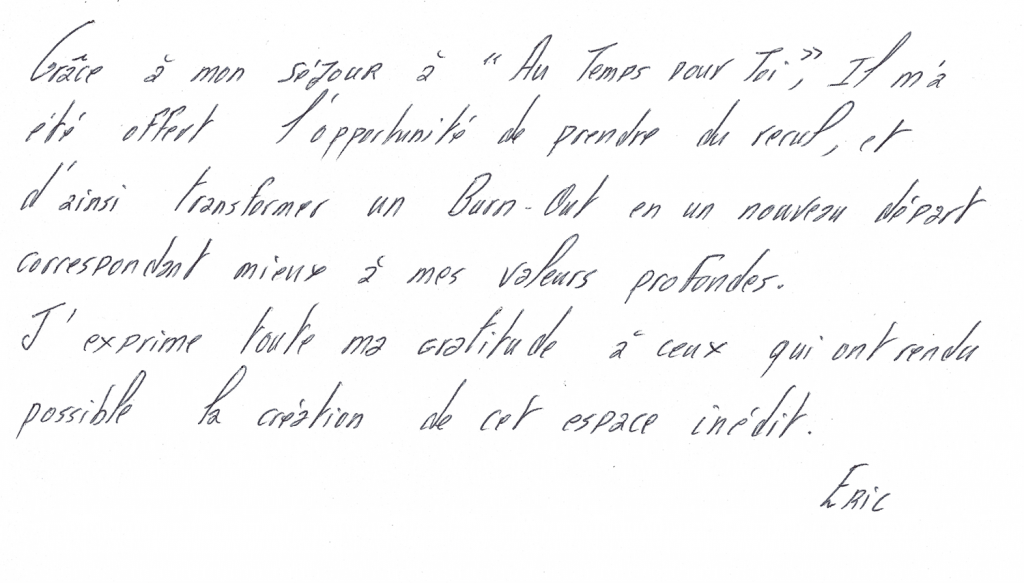 Grâce à mon séjour à "Au Temps pour Toi", Il m'a
été offert l'opportunité de prendre du recul, et
d'ainsi transformer un Burn-Out en un nouveau départ
correspondant mieux à mes valeurs profondes.
J'exprime toute ma gratitude à ceux qui ont rendu
possible la création de cet espace inédit.
Eric